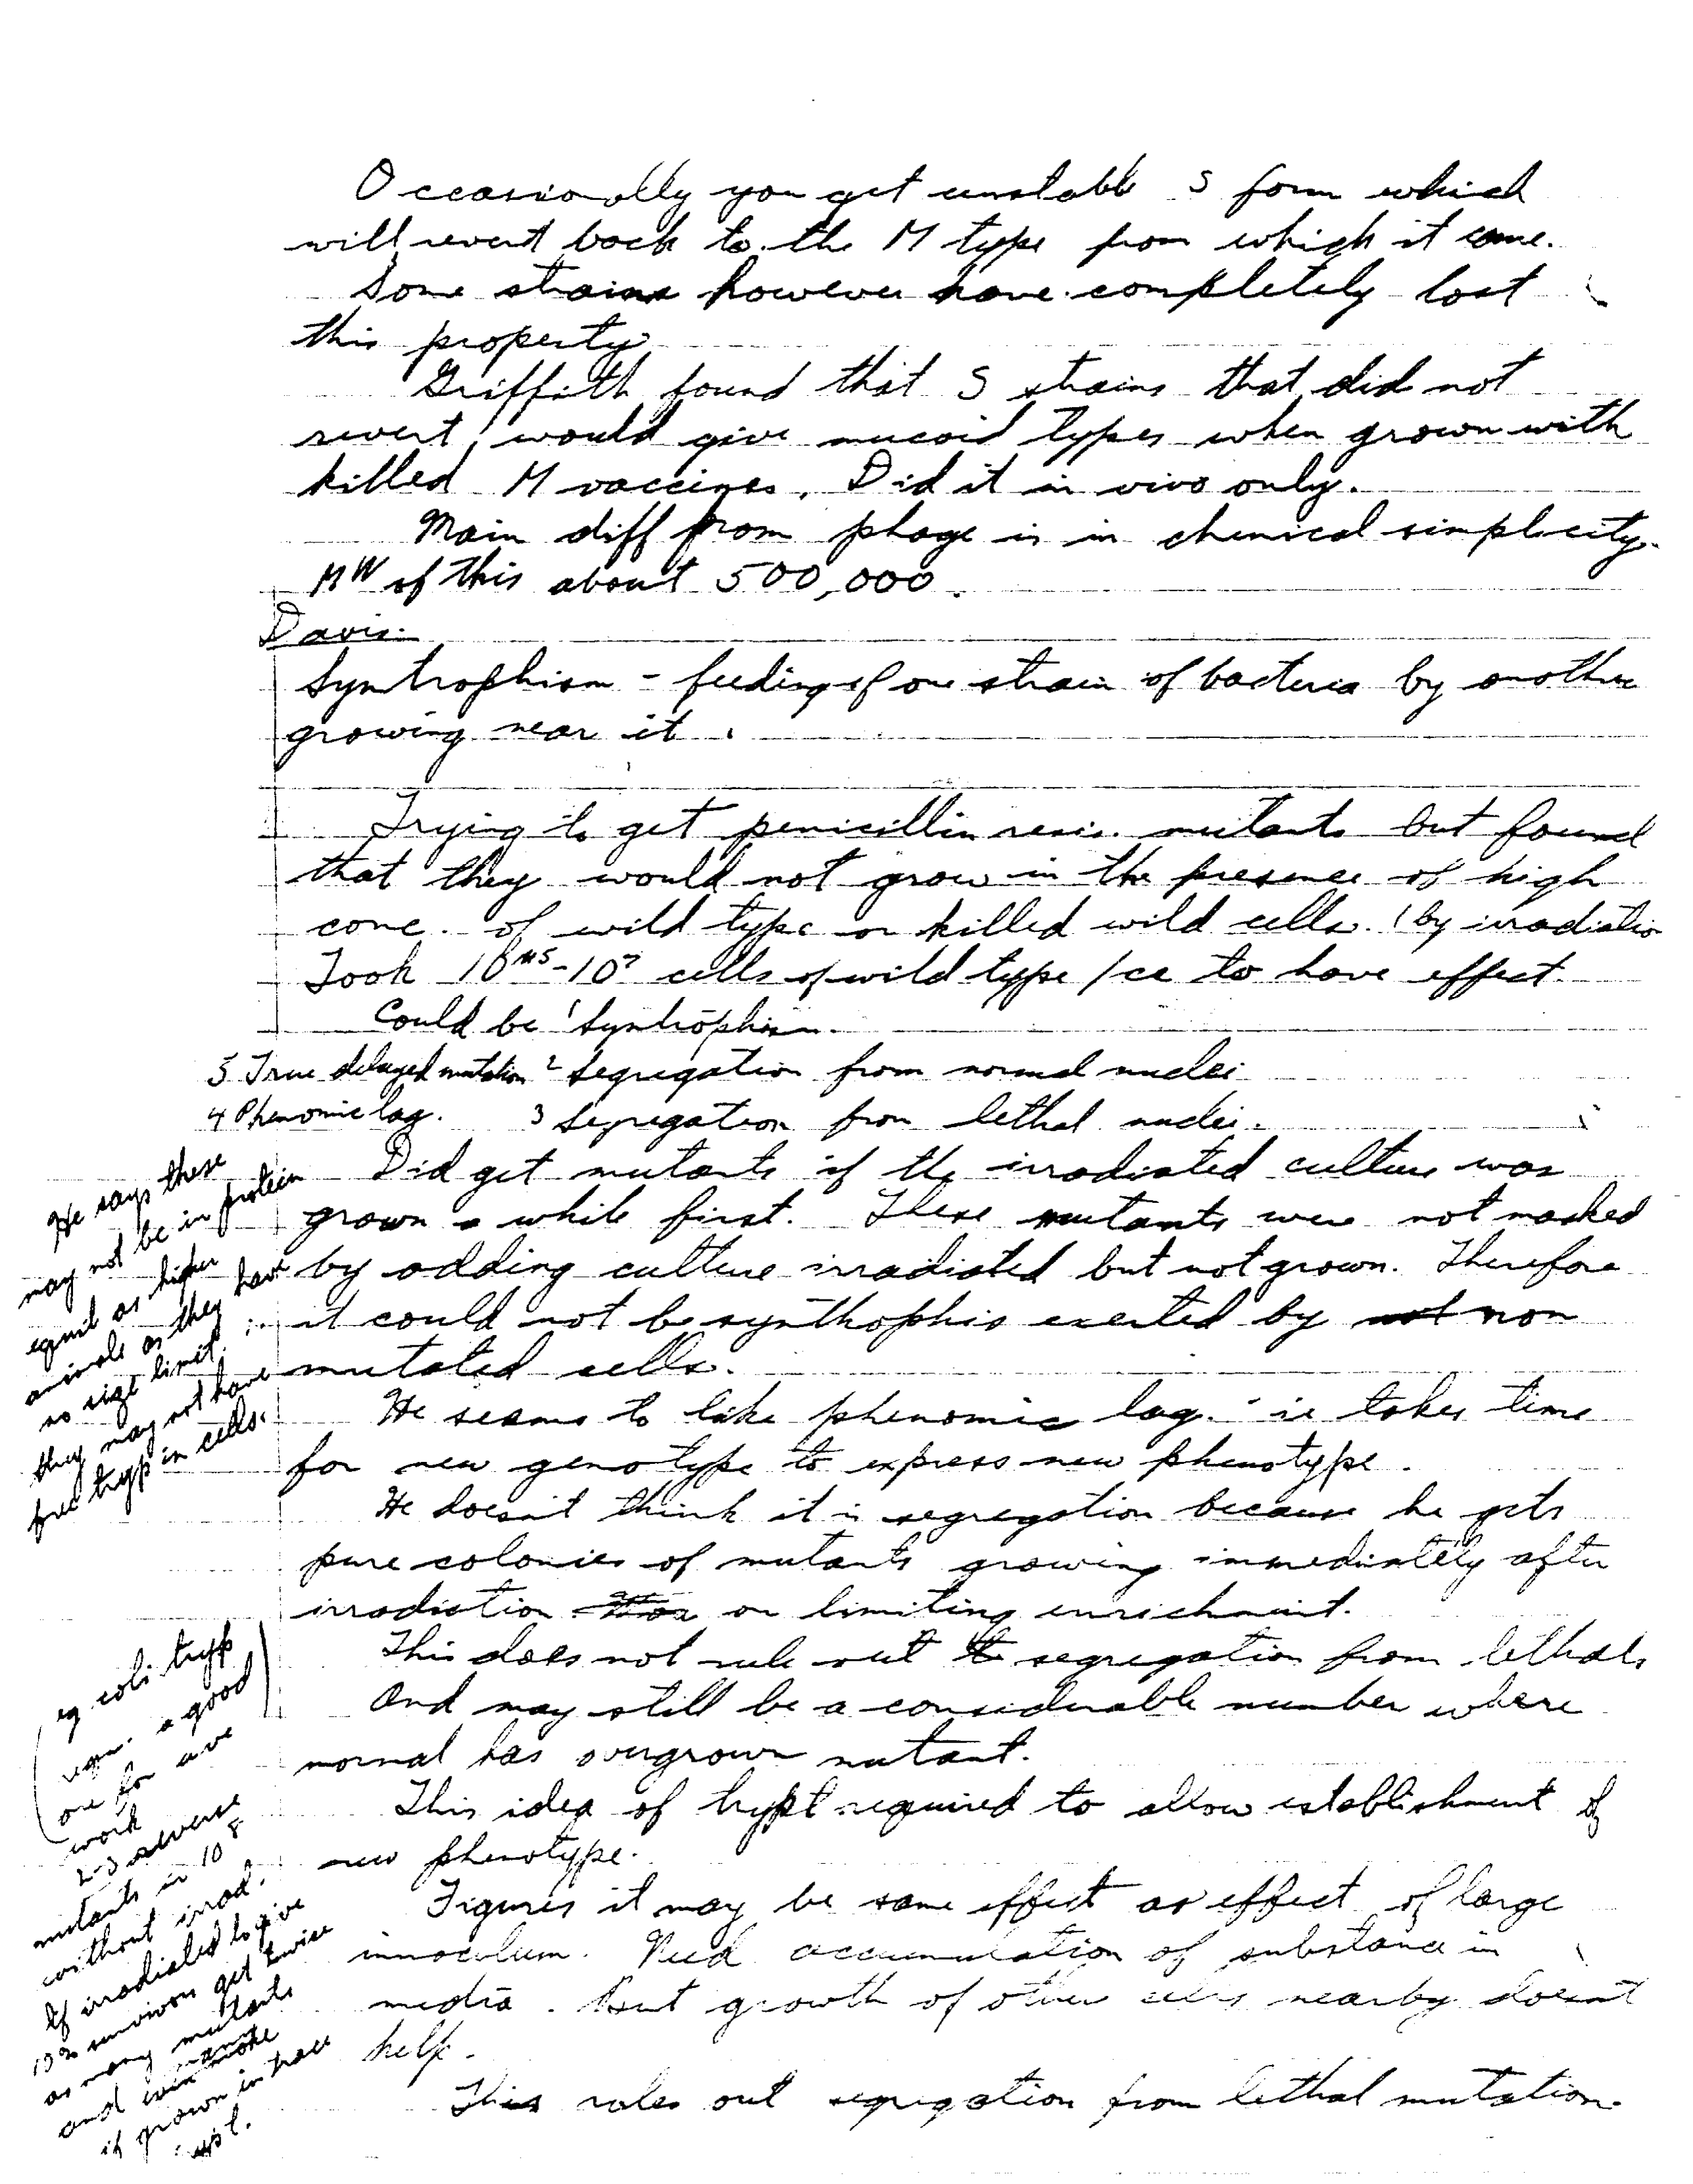 Occassionally you get unstable S form which
will revert back to the M type from which it came.
Some strains however have completely lost
this property
Griffith found that S strains that did not
revert, would give mucoid types when grown with
killed M vaccines. Did it in vivo only.
Main diff from phage is in chemical simplicity.
MW of this about 500,000.
Davis.
Syntrophism - feeding of one strain of bacteria by another
growing near it.
Trying to get penicillin resis. mutants but found
that they would not grow in the presence of high
conc. of wild type or killed wild cells. (by irradiation
Took 10⁵-10⁷ cells of wild type /cc to have effect.
Could be ¹ Syntrophism.
5 True delayed mutation ² Segregation from normal nuclei
4 Phenomic lag. 3 Segregation from lethal nuclei.
Did get mutants if the irradiated culture was
grown a while first. These mutants were not masked
by adding culture irradiated but not grown. Therefore
it could not be synthophis exerted by not non
mutated cells.
He seems to like phenomic lag. - ie takes time
for new genotype to express new phenotype.
He doesn't think it is segregation because he gets
pure colonies of mutants growing immediately after
irradiation on limiting enrichment.
This does not rule out segregation from lethals
And may still be a considerable number where
normal has overgrown mutant.
This idea of trypt required to allow establishment of
new phenotype.
Figures it may be same effect as effect of large
innoculum. Need accumulation of substance in
media. But growth of other cells nearby doesn't
help.
This rules out segregation from lethal mutation.
He says these
may not be in protein
equil as higher
animals as they have
no size limit ∴
they may not have
free tryp in cells.
(eg coli tryp
requ. a good
one for ave
work)
2-3 reverse
mutants in 10⁸
without irrad.
If irradiated to give
10% survivors get twice
as many mutants
and even more
if grown in trace